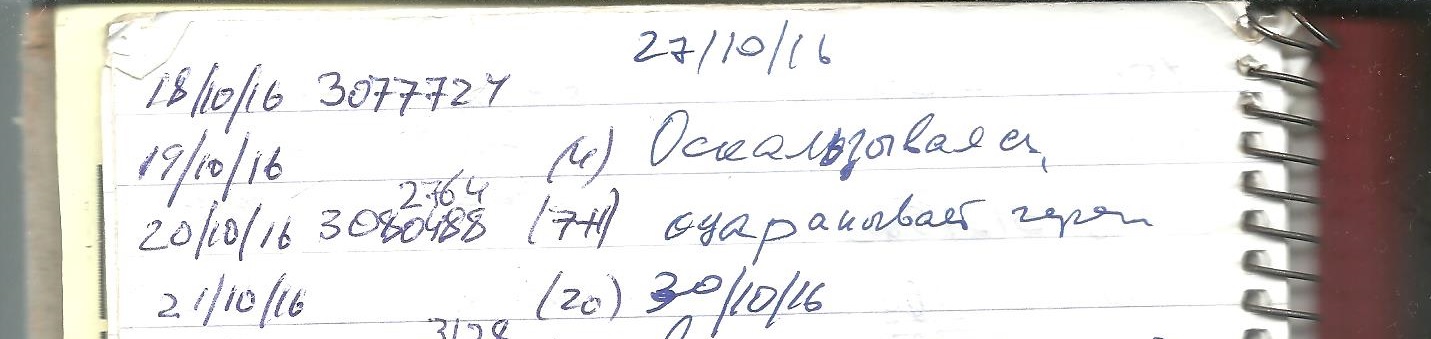 27/10/16
18/10/16 3077724
19/10/16 (4) Оскальзываясь,
2764
20/10/16 3080488 (711) оцарапывает череп
21/10/16 (20) 30/10/16
3128